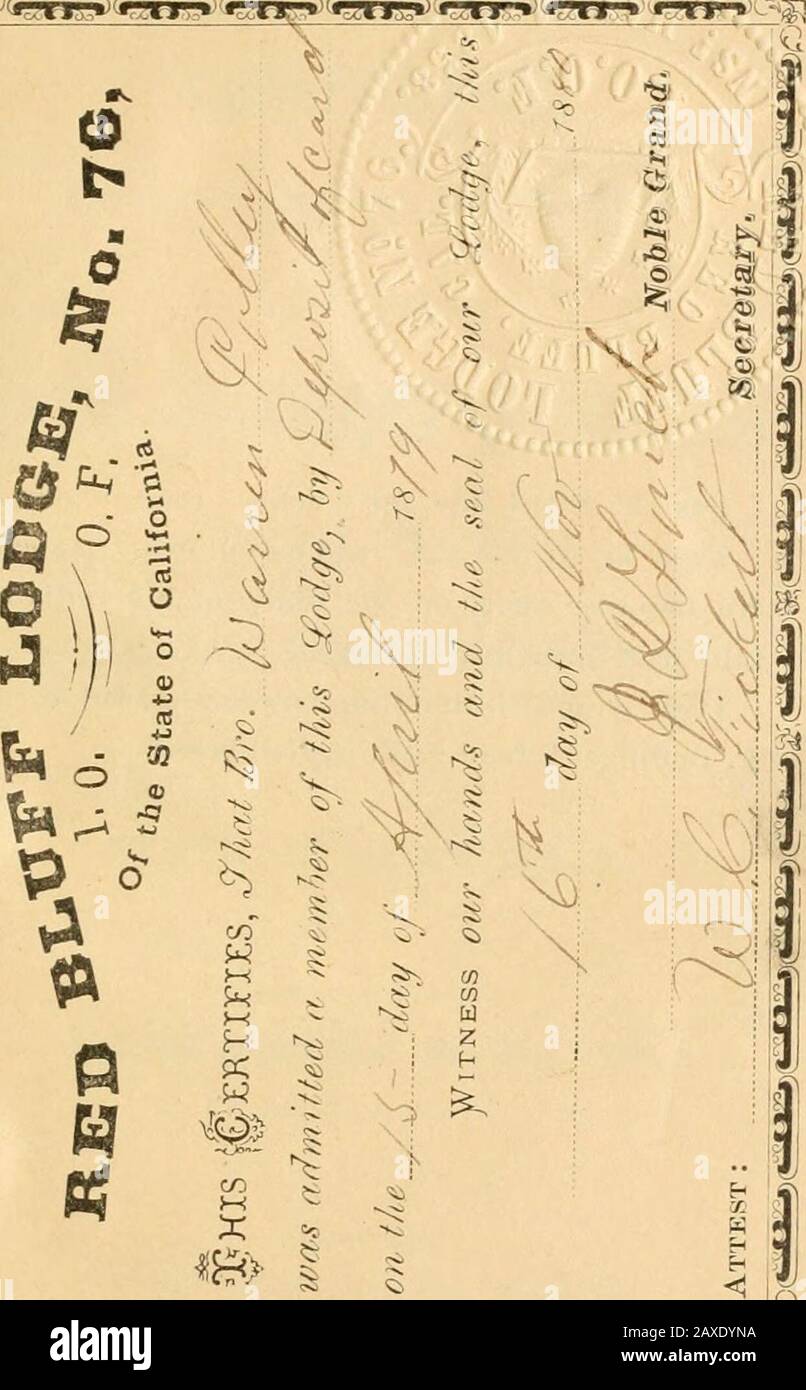 RED BLUFF LODGE, No. 76,
I. O. O. F.
Of the State of California.
THIS CERTIFIES, That Bro. Warren Polley
was admitted a member of this Lodge, by Deposit of card
on the 15 day of April 1879
WITNESS our hands and the seal of our Lodge, this
16th day of Nov 1880
Noble Grand.
ATTEST: W. C. Secretary.
LODGE No. 76.
I.O.O.F.
RED BLUFF, CAL.
INST.
alamy
alamy
Image ID: 2AXDYNA
www.alamy.com